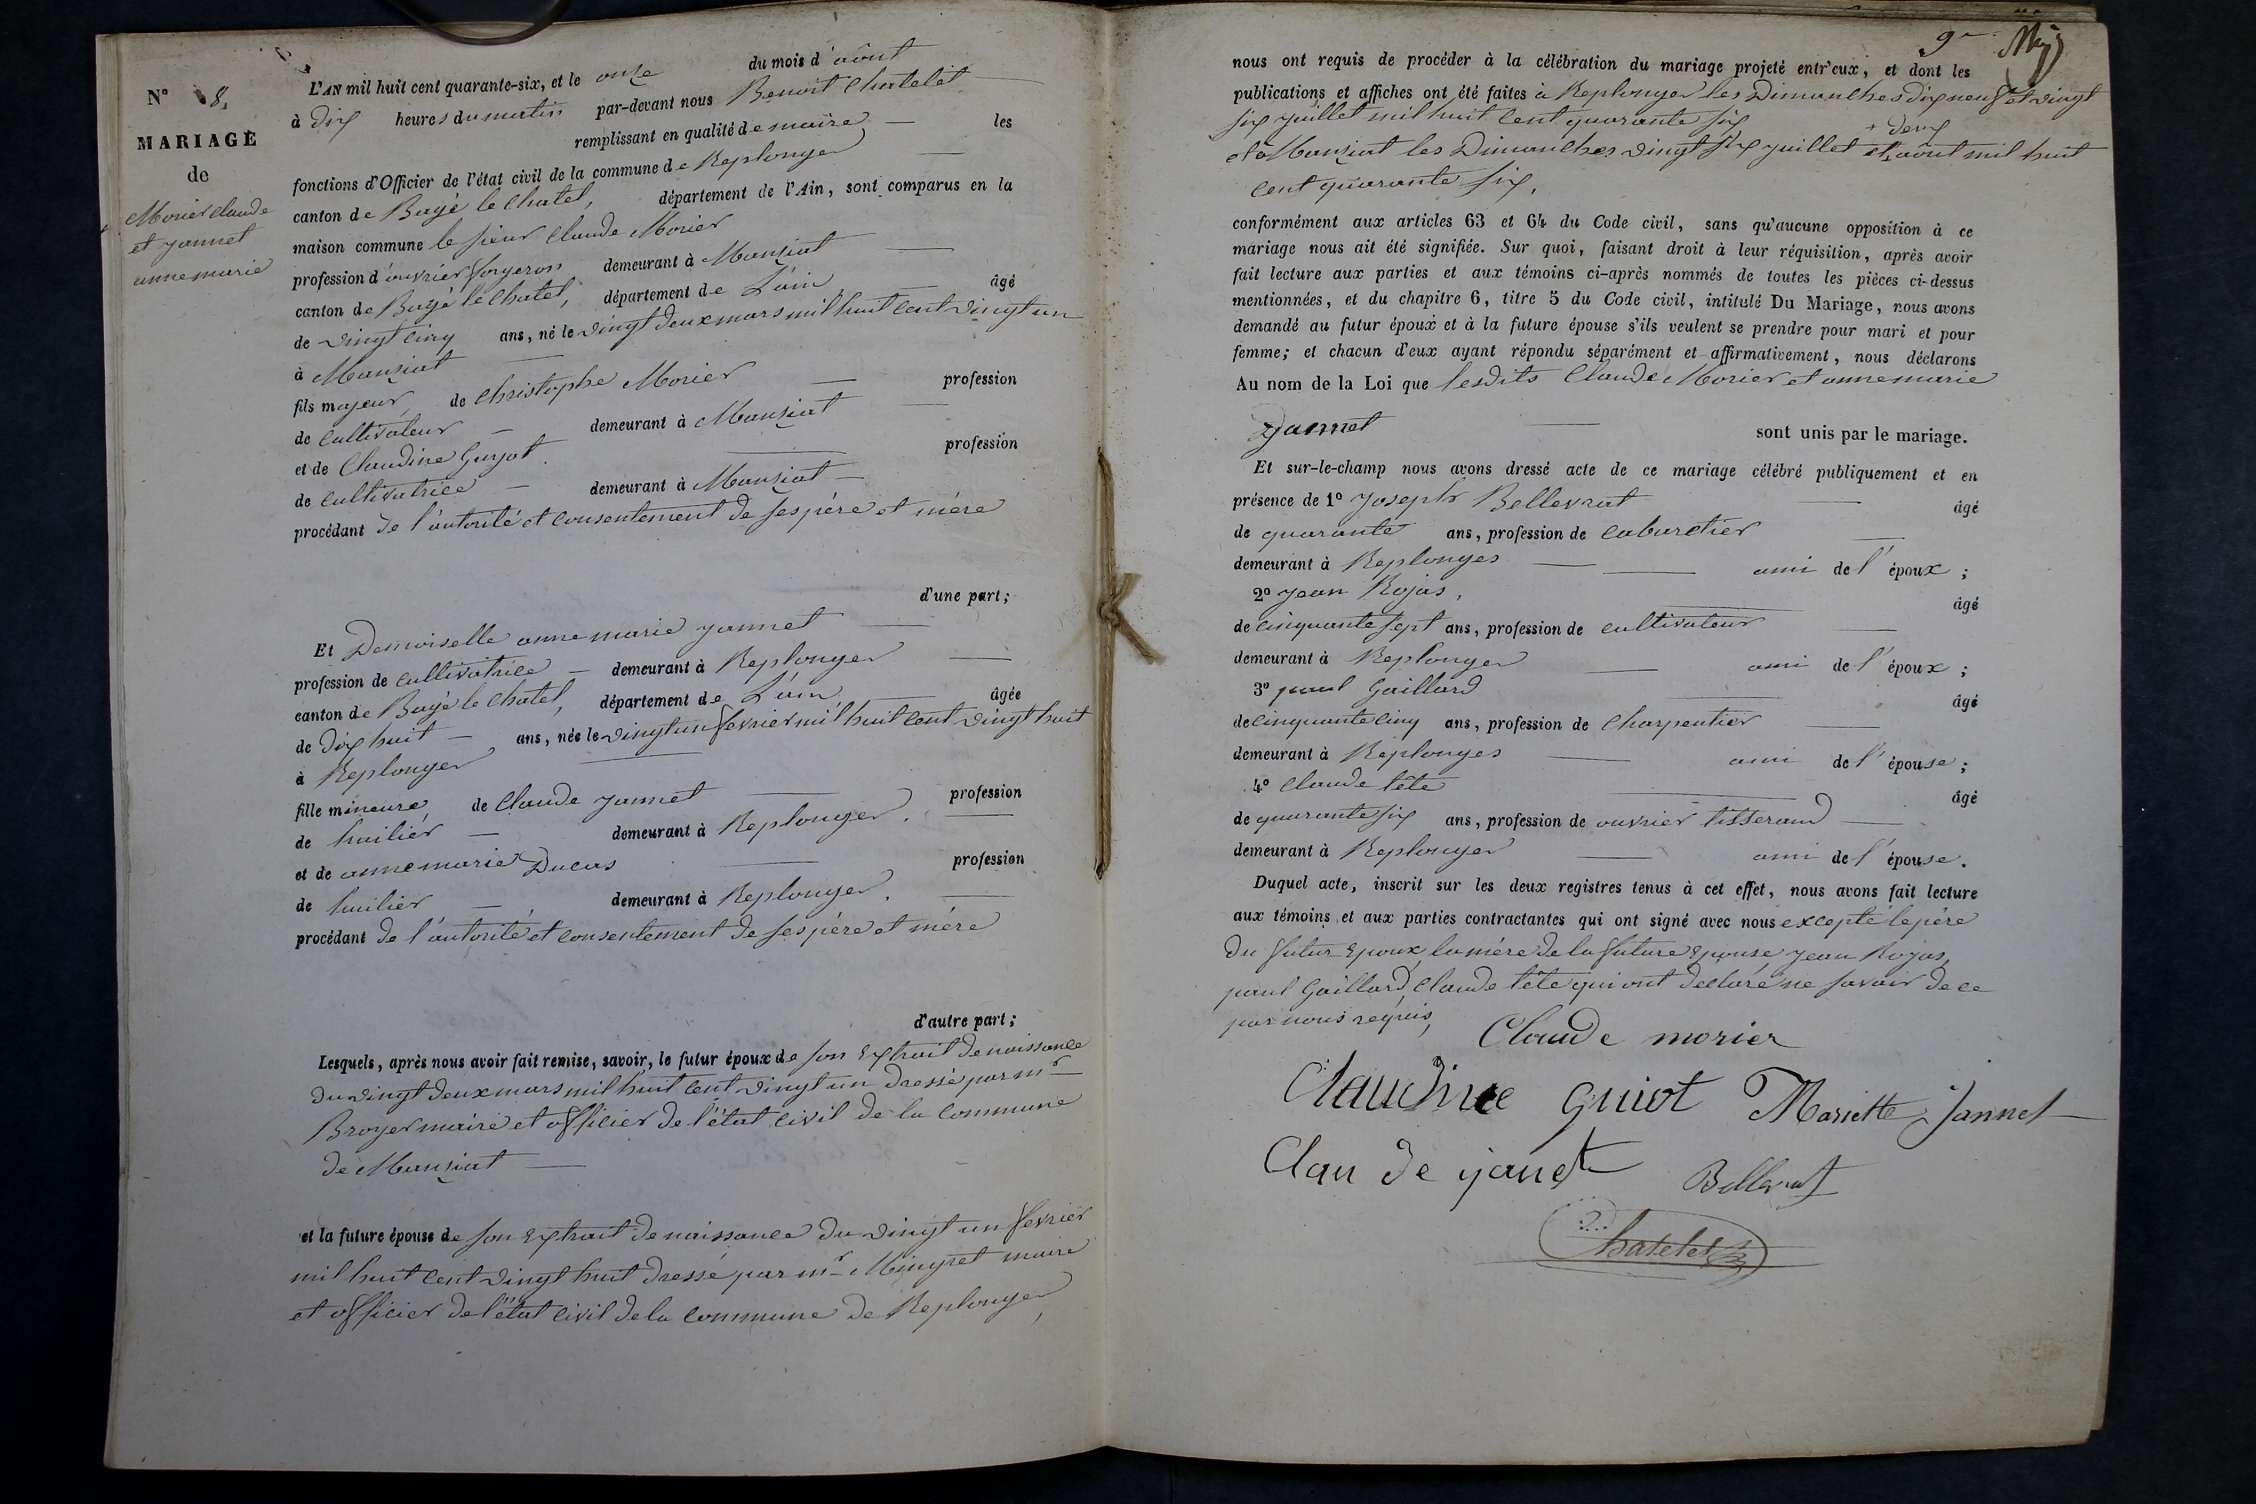 N° 8,
MARIAGE
de
Morier Claude
et yannet
anne marie
L'AN mil huit cent quarante-six, et le onze du mois d'août
à dix heures du matin par-devant nous Benoit Chatelet
remplissant en qualité de maire — les
fonctions d'Officier de l'état civil de la commune de Replonges —
canton de Bagé le Chatel, département de l'Ain, sont comparus en la
maison commune le sieur Claude Morier
profession d'ouvrier forgeron demeurant à Manziat —
canton de Bagé le Chatel, département de L'ain — âgé
de vingt cinq ans, né le vingt deux mars mil huit cent vingt un
à Manziat —
fils majeur, de christophe Morier — profession
de cultivateur — demeurant à Manziat —
et de Claudine Guyot. — profession
de cultivatrice — demeurant à Manziat —
procédant de l'autorité et consentement de ses père et mère
d'une part;
Et Demoiselle anne marie yannet —
profession de cultivatrice — demeurant à Replonges —
canton de Bagé le Chatel, département de L'ain — âgée
de dix huit — ans, née le vingt un fevrier mil huit cent vingt huit
à Replonges —
fille mineure, de Claude yannet — profession
de huilier — demeurant à Replonges. —
et de anne marie Ducas — profession
de huilier — demeurant à Replonges. —
procédant de l'autorité et consentement de ses père et mère
d'autre part;
Lesquels, après nous avoir fait remise, savoir, le futur époux de son Extrait de naissance
du vingt deux mars mil huit cent vingt un dressé par mr
Broyer maire et officier de l'état civil de la commune
de Manziat —
et la future épouse de son Extrait de naissance du vingt un fevrier
mil huit cent vingt huit dressé par mr Mingret maire
et officier de l'état civil de la commune de Replonges,
9e
nous ont requis de procéder à la célébration du mariage projeté entr'eux, et dont les
publications et affiches ont été faites à Replonges les Dimanches dix neuf et vingt
six juillet mil huit cent quarante six
+ deux
et à Manziat les Dimanches vingt six juillet et août mil huit
cent quarante six,
conformément aux articles 63 et 64 du Code civil, sans qu'aucune opposition à ce
mariage nous ait été signifiée. Sur quoi, faisant droit à leur réquisition, après avoir
fait lecture aux parties et aux témoins ci-après nommés de toutes les pièces ci-dessus
mentionnées, et du chapitre 6, titre 5 du Code civil, intitulé Du Mariage, nous avons
demandé au futur époux et à la future épouse s'ils veulent se prendre pour mari et pour
femme; et chacun d'eux ayant répondu séparément et affirmativement, nous déclarons
Au nom de la Loi que lesdits Claude Morier et anne marie
yannet — sont unis par le mariage.
Et sur-le-champ nous avons dressé acte de ce mariage célébré publiquement et en
présence de 1° Joseph Bellevrat — âgé
de quarante ans, profession de cabaretier —
demeurant à Replonges — — ami de l'époux;
2° Jean Rojas, — âgé
de cinquante sept ans, profession de cultivateur —
demeurant à Replonges — ami de l'époux;
3° paul Gaillard — âgé
de cinquante cinq ans, profession de Charpentier —
demeurant à Replonges — ami de l'épouse;
4° Claude tête — âgé
de quarante six ans, profession de ouvrier tisserand —
demeurant à Replonges — ami de l'épouse.
Duquel acte, inscrit sur les deux registres tenus à cet effet, nous avons fait lecture
aux témoins et aux parties contractantes qui ont signé avec nous excepté le père
du futur Epoux, la mère de la future Epouse, Jean Rojas,
paul Gaillard, Claude tête qui ont déclaré ne savoir de ce
par nous requis,
Claude morier
Claudine Guiot Mariette Jannet
Clau de yanet Bellevrat
Chatelet